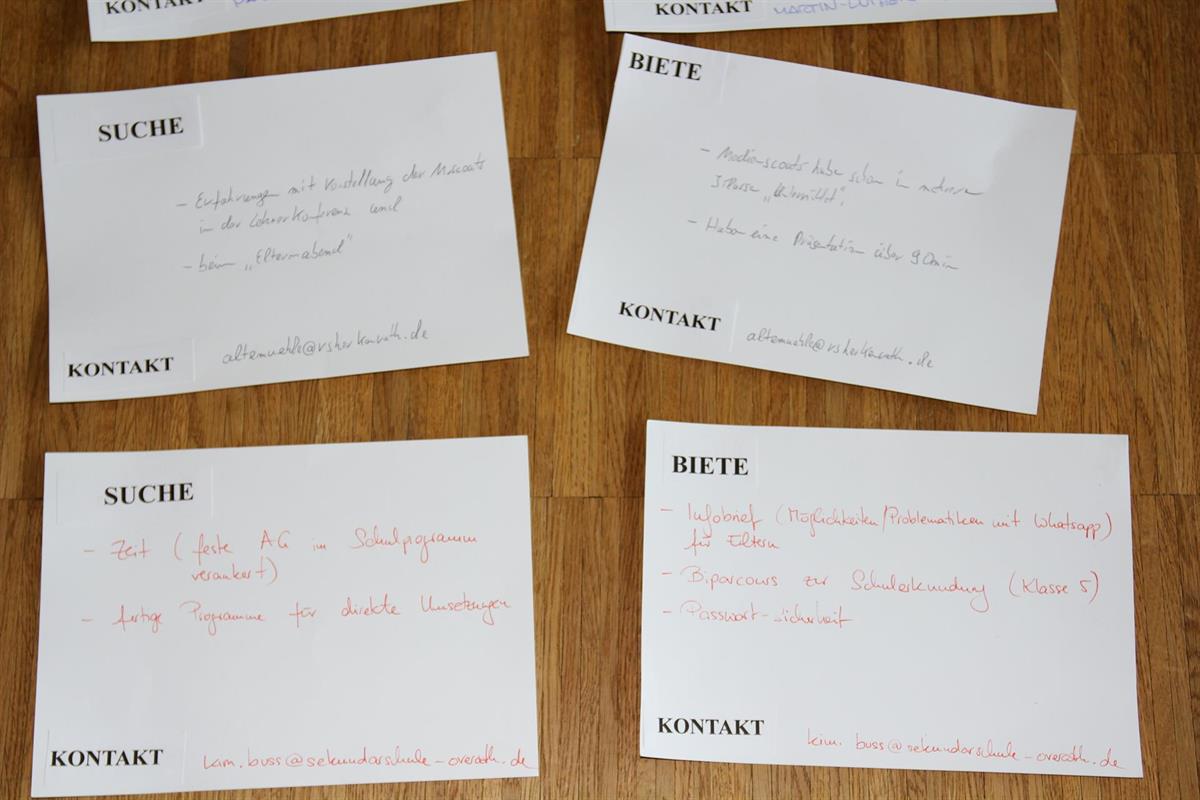 KONTAKT
KONTAKT MARTIN-LUTHER
SUCHE
- Erfahrungen mit Vorstellung der Mscouts
in der Lehrerkonferenz und
- beim "Elternabend"
KONTAKT altemuehle@rsherkenrath.de
BIETE
- Medienscouts habe schon in mehreren
"unterrichtet".
- Haben eine Präsentation über 90min
KONTAKT altemuehle@rsherkenrath.de
SUCHE
- Zeit (feste AG im Schulprogramm
verankert)
- fertige Programme für direkte Umsetzungen
KONTAKT kim.buss@sekundarschule-overath.de
BIETE
- Infobrief (Möglichkeiten/Problematiken mit Whatsapp)
für Eltern
- Biparcours zur Schulerkundung (Klasse 5)
- Passwort-sicherheit
KONTAKT kim.buss@sekundarschule-overath.de